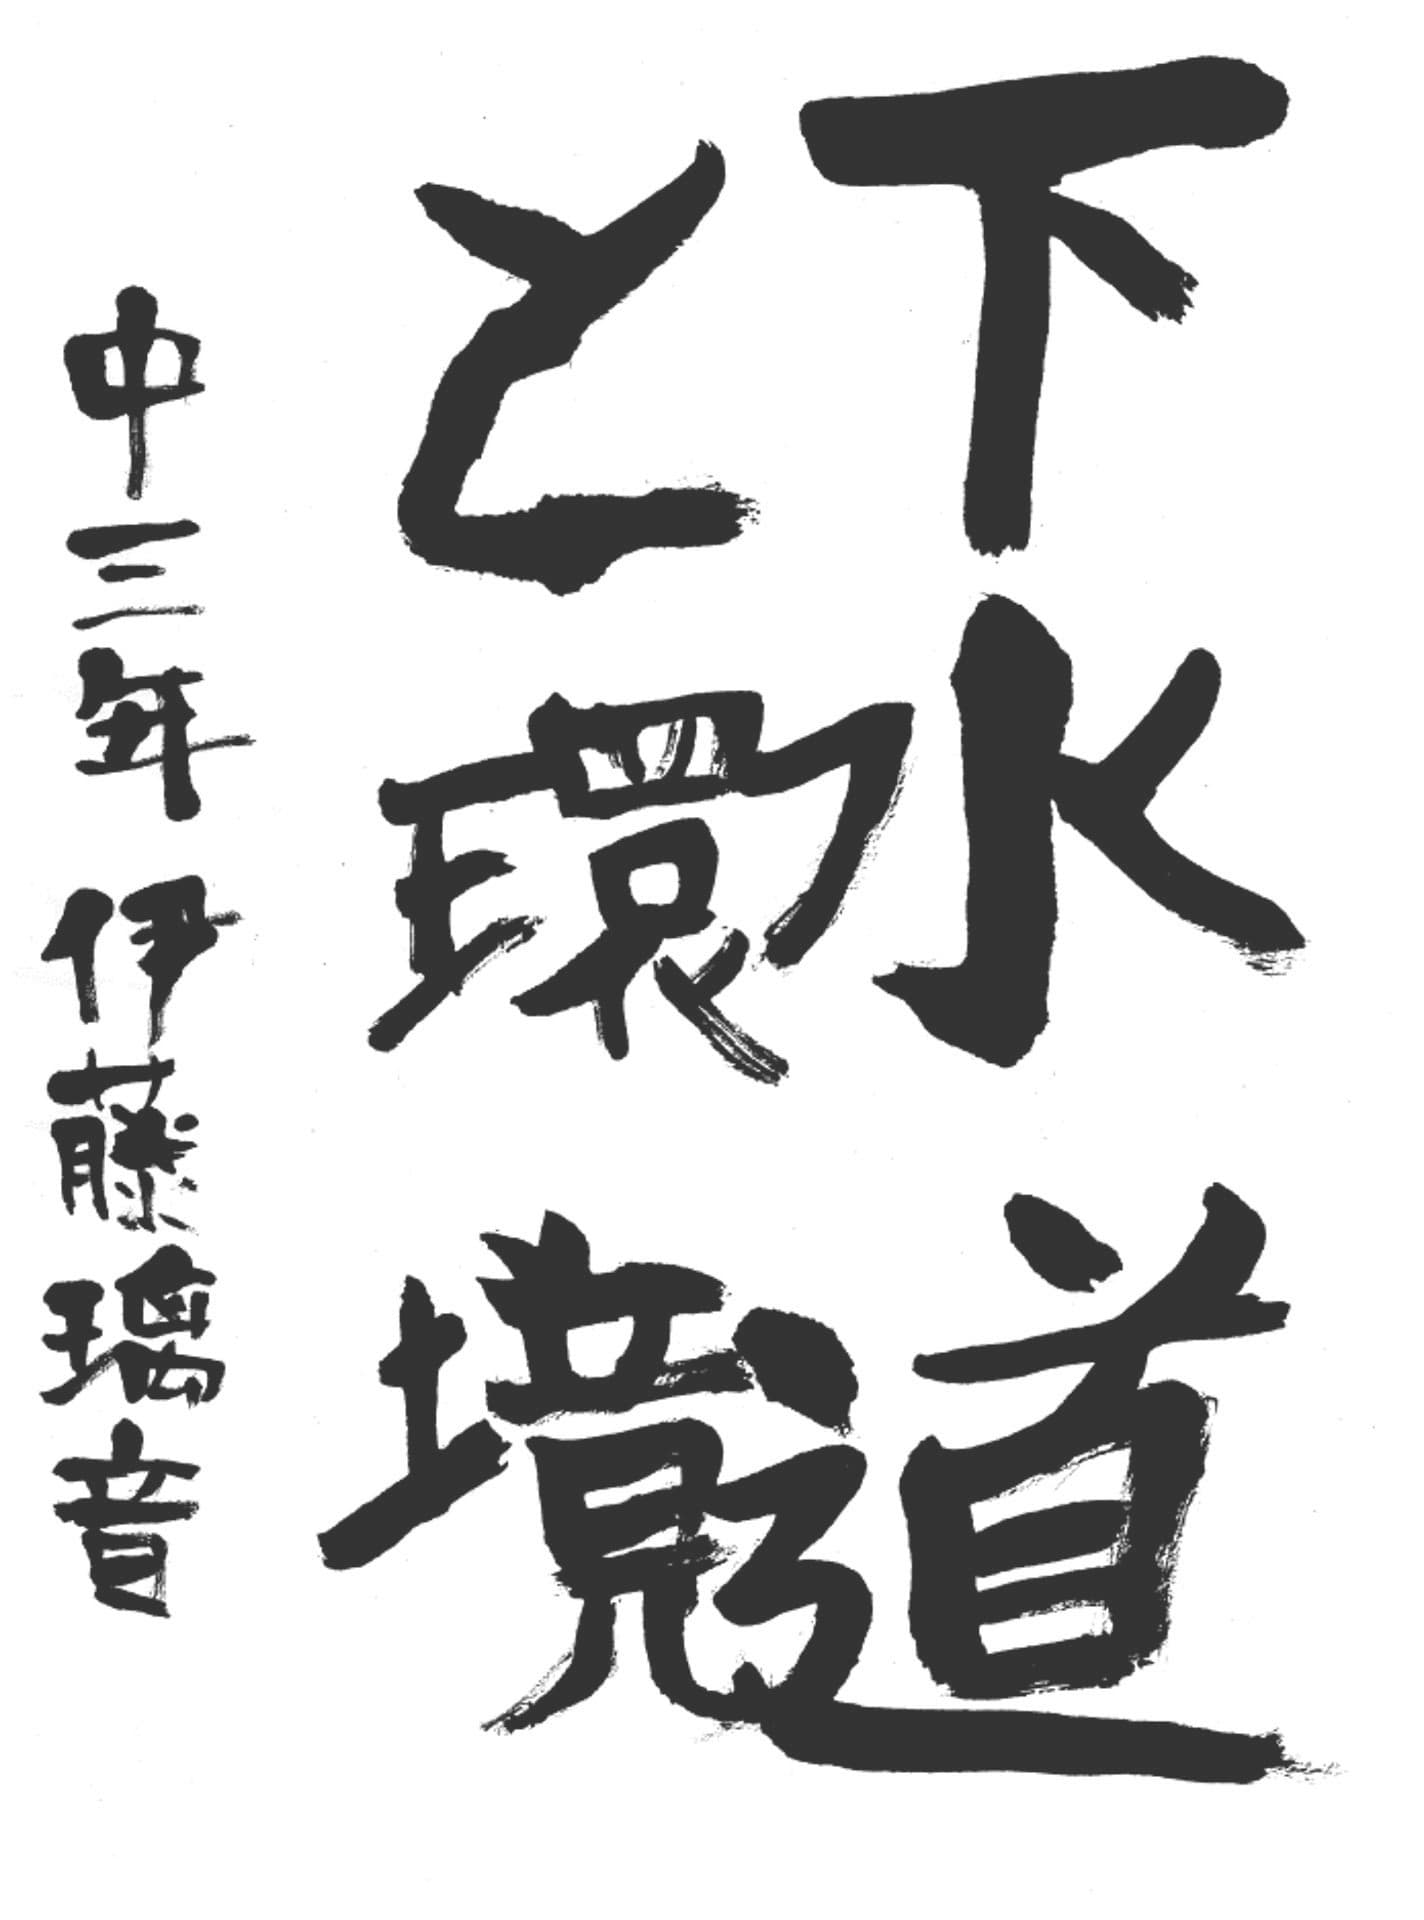 下水道
と環境
中三年 伊藤瑠音